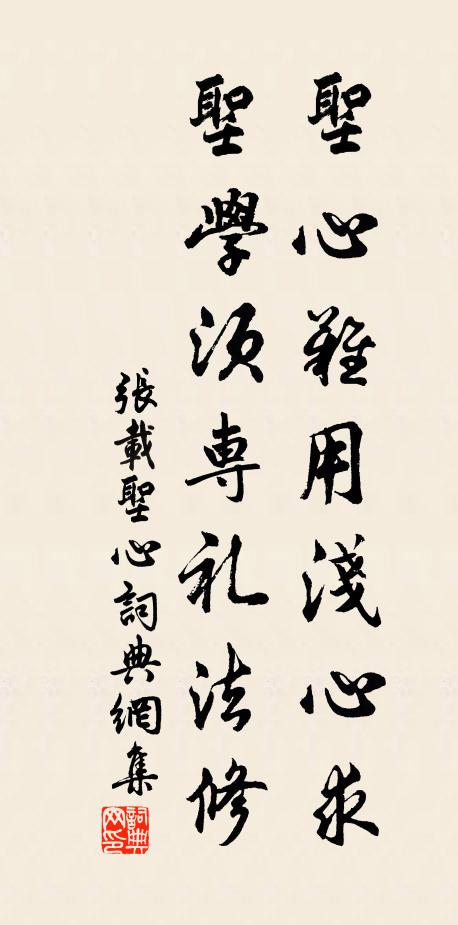 聖心難用淺心求
聖學須專礼法修
張載聖心詞典網集
詞典
网印